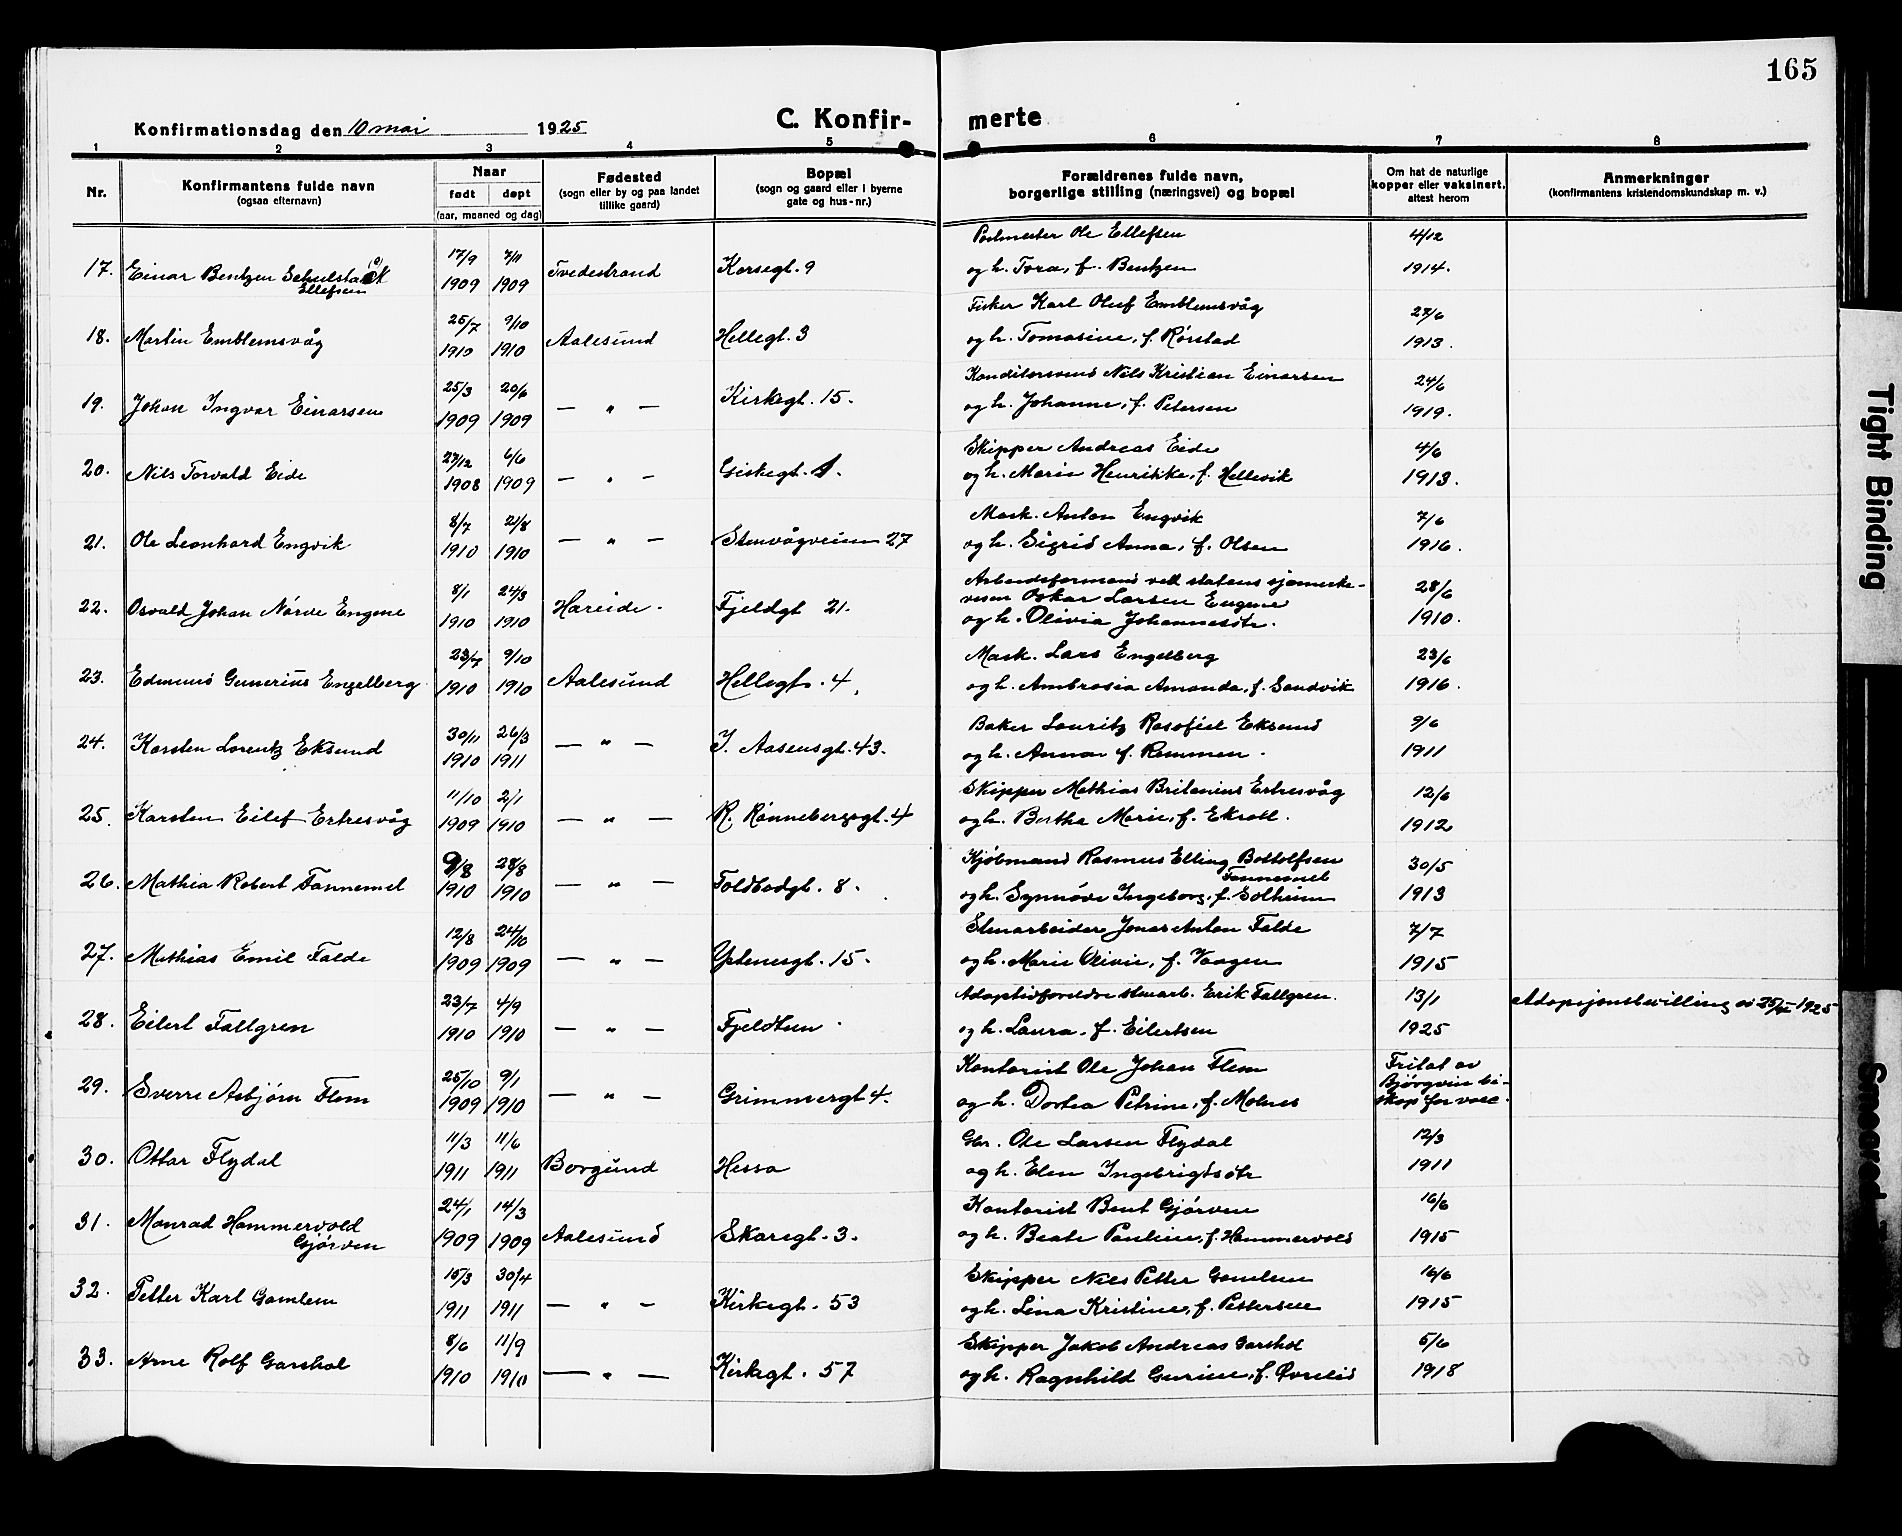 165
Konfirmationsdag den 10 mai 1925
C. Konfir-merte
1 2 3 4 5 6 7 8
Nr.
Konfirmantens fulde navn
(ogsaa efternavn)
Naar
født døpt
(aar, maaned og dag)
Fødested
(sogn eller by og paa landet
tillike gaard)
Bopæl
(sogn og gaard eller i byerne
gate og hus-nr.)
Forældrenes fulde navn,
borgerlige stilling (næringsvei) og bopæl
Om hat de naturlige
kopper eller vaksinert,
attest herom
Anmerkninger
(konfirmantens kristendomskundskap m. v.)
17/9 7/11 Postmester Ole Ellefsen 4/12
17. Einar Bentzen Schulstock Tvedestrand Korsegt. 9
Ellefsen 1909 1909 og h. Tora, f. Bentzen 1914.
25/7 9/10 Fisker Karl Oluf Emblemsvåg 27/6
18. Martin Emblemsvåg Aalesund Hellegt. 3
1910 1910 og h. Tomasine, f. Rørstad 1913.
25/3 20/6 Konditorsvend Nils Kristian Einarsen 24/6
19. Johan Ingvar Einarsen — " — Kirkegt. 15.
1909 1909 og h. Johanne, f. Petersen 1919.
27/12 6/6 Skipper Andreas Eide 4/6
20. Nils Torvald Eide — " — Giskegt. 1.
1908 1909 og h. Marie Henrikke, f. Hellevik 1913.
8/7 21/8 Mask. Anton Engvik 7/6
21. Ole Leonhard Engvik — " — Stenvågveien 27
1910 1910 og h. Sigrid Anna, f. Olsen 1916.
8/1 24/3 Arbeidsformand ved statens sjømerke- 28/6
22. Osvald Johan Nørve Engene Hareide. Fjeldgt 21.
vesen Oskar Larsen Engene
1910 1910 og h. Olivia Johannesdtr. 1910.
23/7 9/10 Mask. Lars Engelberg 23/6
23. Edmund Gunerius Engelberg Aalesund Hellegt. 4.
1910 1910 og h. Ambrosia Amanda, f. Sandvik 1916.
30/11 26/3 Baker Lauritz Rosofiel Eksund 9/6
24. Karsten Lorentz Eksund — " — I. Aasensgt. 43.
1910 1911 og h. Anna f. Remmen. 1911
11/10 2/1 Skipper Mathias Ertresvåg 12/6
25. Karsten Eilef Ertresvåg — " — R. Rønnebergsgt. 4
1909 1910 og h. Bertha Marie, f. Ekroll. 1912
9/8 28/8 Kjøbmand Rasmus Elling Bottolfsen 30/5
Fannemel
26. Mathia Robert Fannemel — " — Toldbodgt. 8.
1910 1910 og h. Synnøve Ingeborg, f. Solheim 1913
12/8 24/10 Stenarbeider Jonas Anton Falde 7/7
27. Mathias Emil Falde — " — Ystenesgt. 15.
1909 1909 og h. Marie Olivie, f. Vaagen 1915
23/7 4/9 Adoptivforeldre stenarb. Erik Fallgren. 13/1
28. Eilert Fallgren — " — Fjeldtun.
1910 1910 og h. Laura, f. Eilertsen 1925
25/10 9/1 Kontorist Ole Johan Flem Fritat av
29. Sverre Asbjørn Flem — " — Grimmergt 4. Bjørgvin bi-
1909 1910 og h. Dortea Petrine, f. Molnes skop for vacc.
11/3 11/6 Gbr. Ole Larsen Flydal 12/3
30. Ottar Flydal Borgund Hessa
1911 1911 og h. Elen Ingebrigtsdtr 1911
24/1 14/3 Kontorist Bent Gjørven 16/6
31. Monrad Hammervold
Gjørven Aalesund Skaregt. 3.
1909 1909 og h. Beate Pauline, f. Hammervold 1915
15/3 30/4 Skipper Nils Petter Gamlem 16/6
32. Petter Karl Gamlem — " — Kirkegt. 53
1911 1911 og h. Lina Kristine, f. Pettersen 1915
8/6 11/9 Skipper Jakob Andreas Garshol 5/6
33. Arne Rolf Garshol — " — Kirkegt. 57
1910 1910 og h. Ragnhild Gurine, f. Øvrelid 1918
Tight Binding